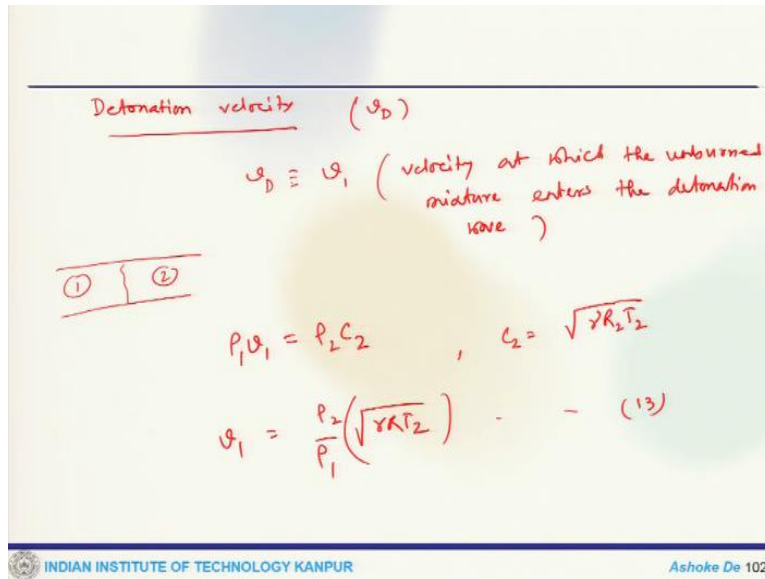 Detonation velocity (ϑ_D)
ϑ_D ≡ ϑ_1 ( velocity at which the unburned
mixture enters the detonation
wave )
① ②
ρ_1 ϑ_1 = ρ_2 C_2 , C_2 = √(γR_2T_2)
ϑ_1 = ρ_2/ρ_1 (√(γRT_2)) - - (13)
INDIAN INSTITUTE OF TECHNOLOGY KANPUR
Ashoke De 102